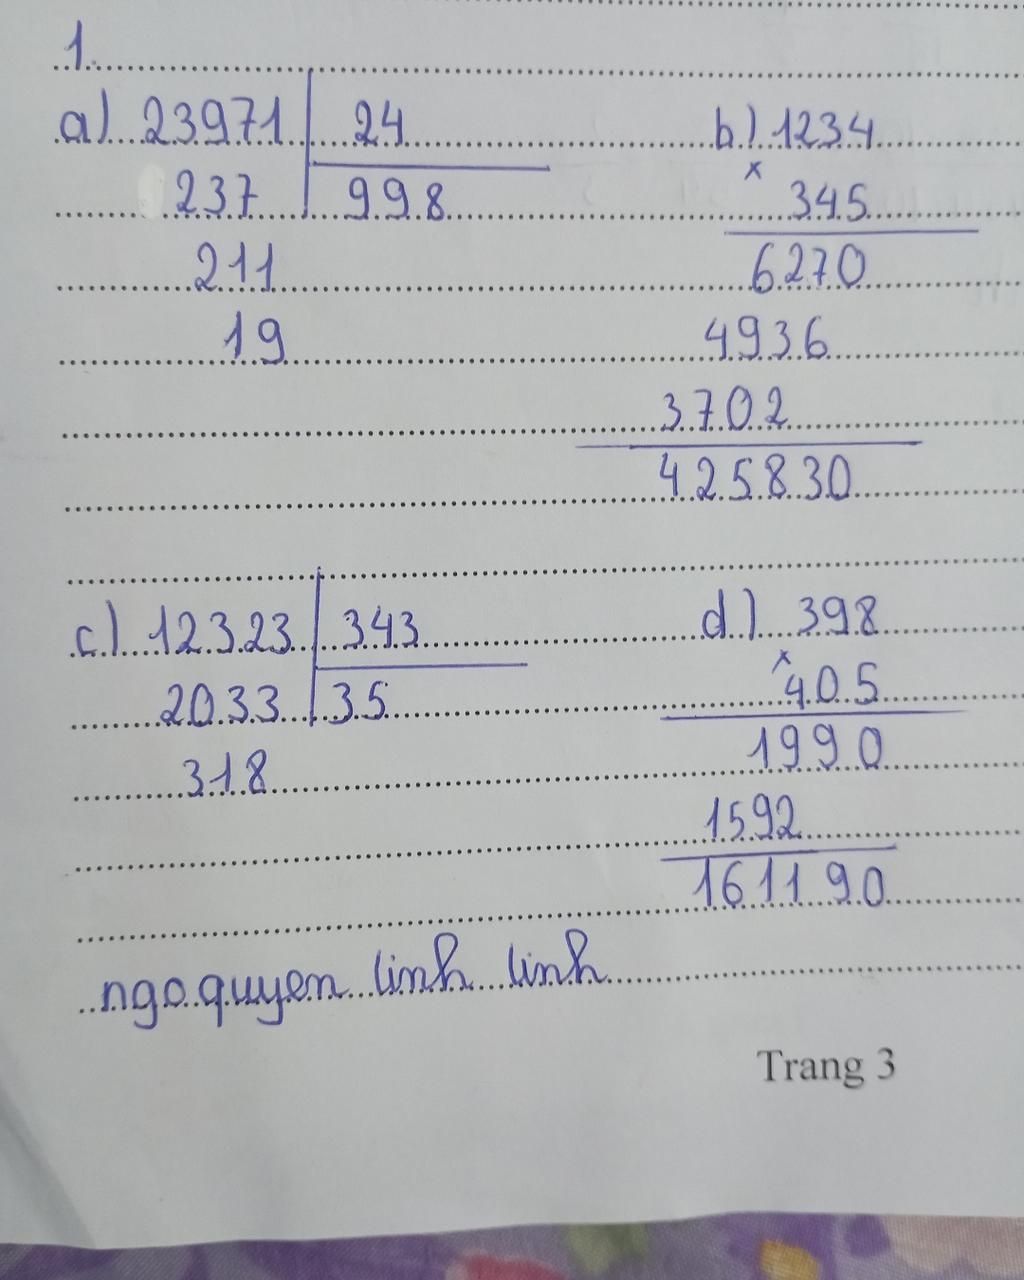 1.
a) 23971 24 b) 1234
237 998 x 345
211 6270
19 4936
3702
425830
c) 12323 343 d) 398
2033 35 x 405
318 1990
1592
161190
ngo quyen linh linh
Trang 3